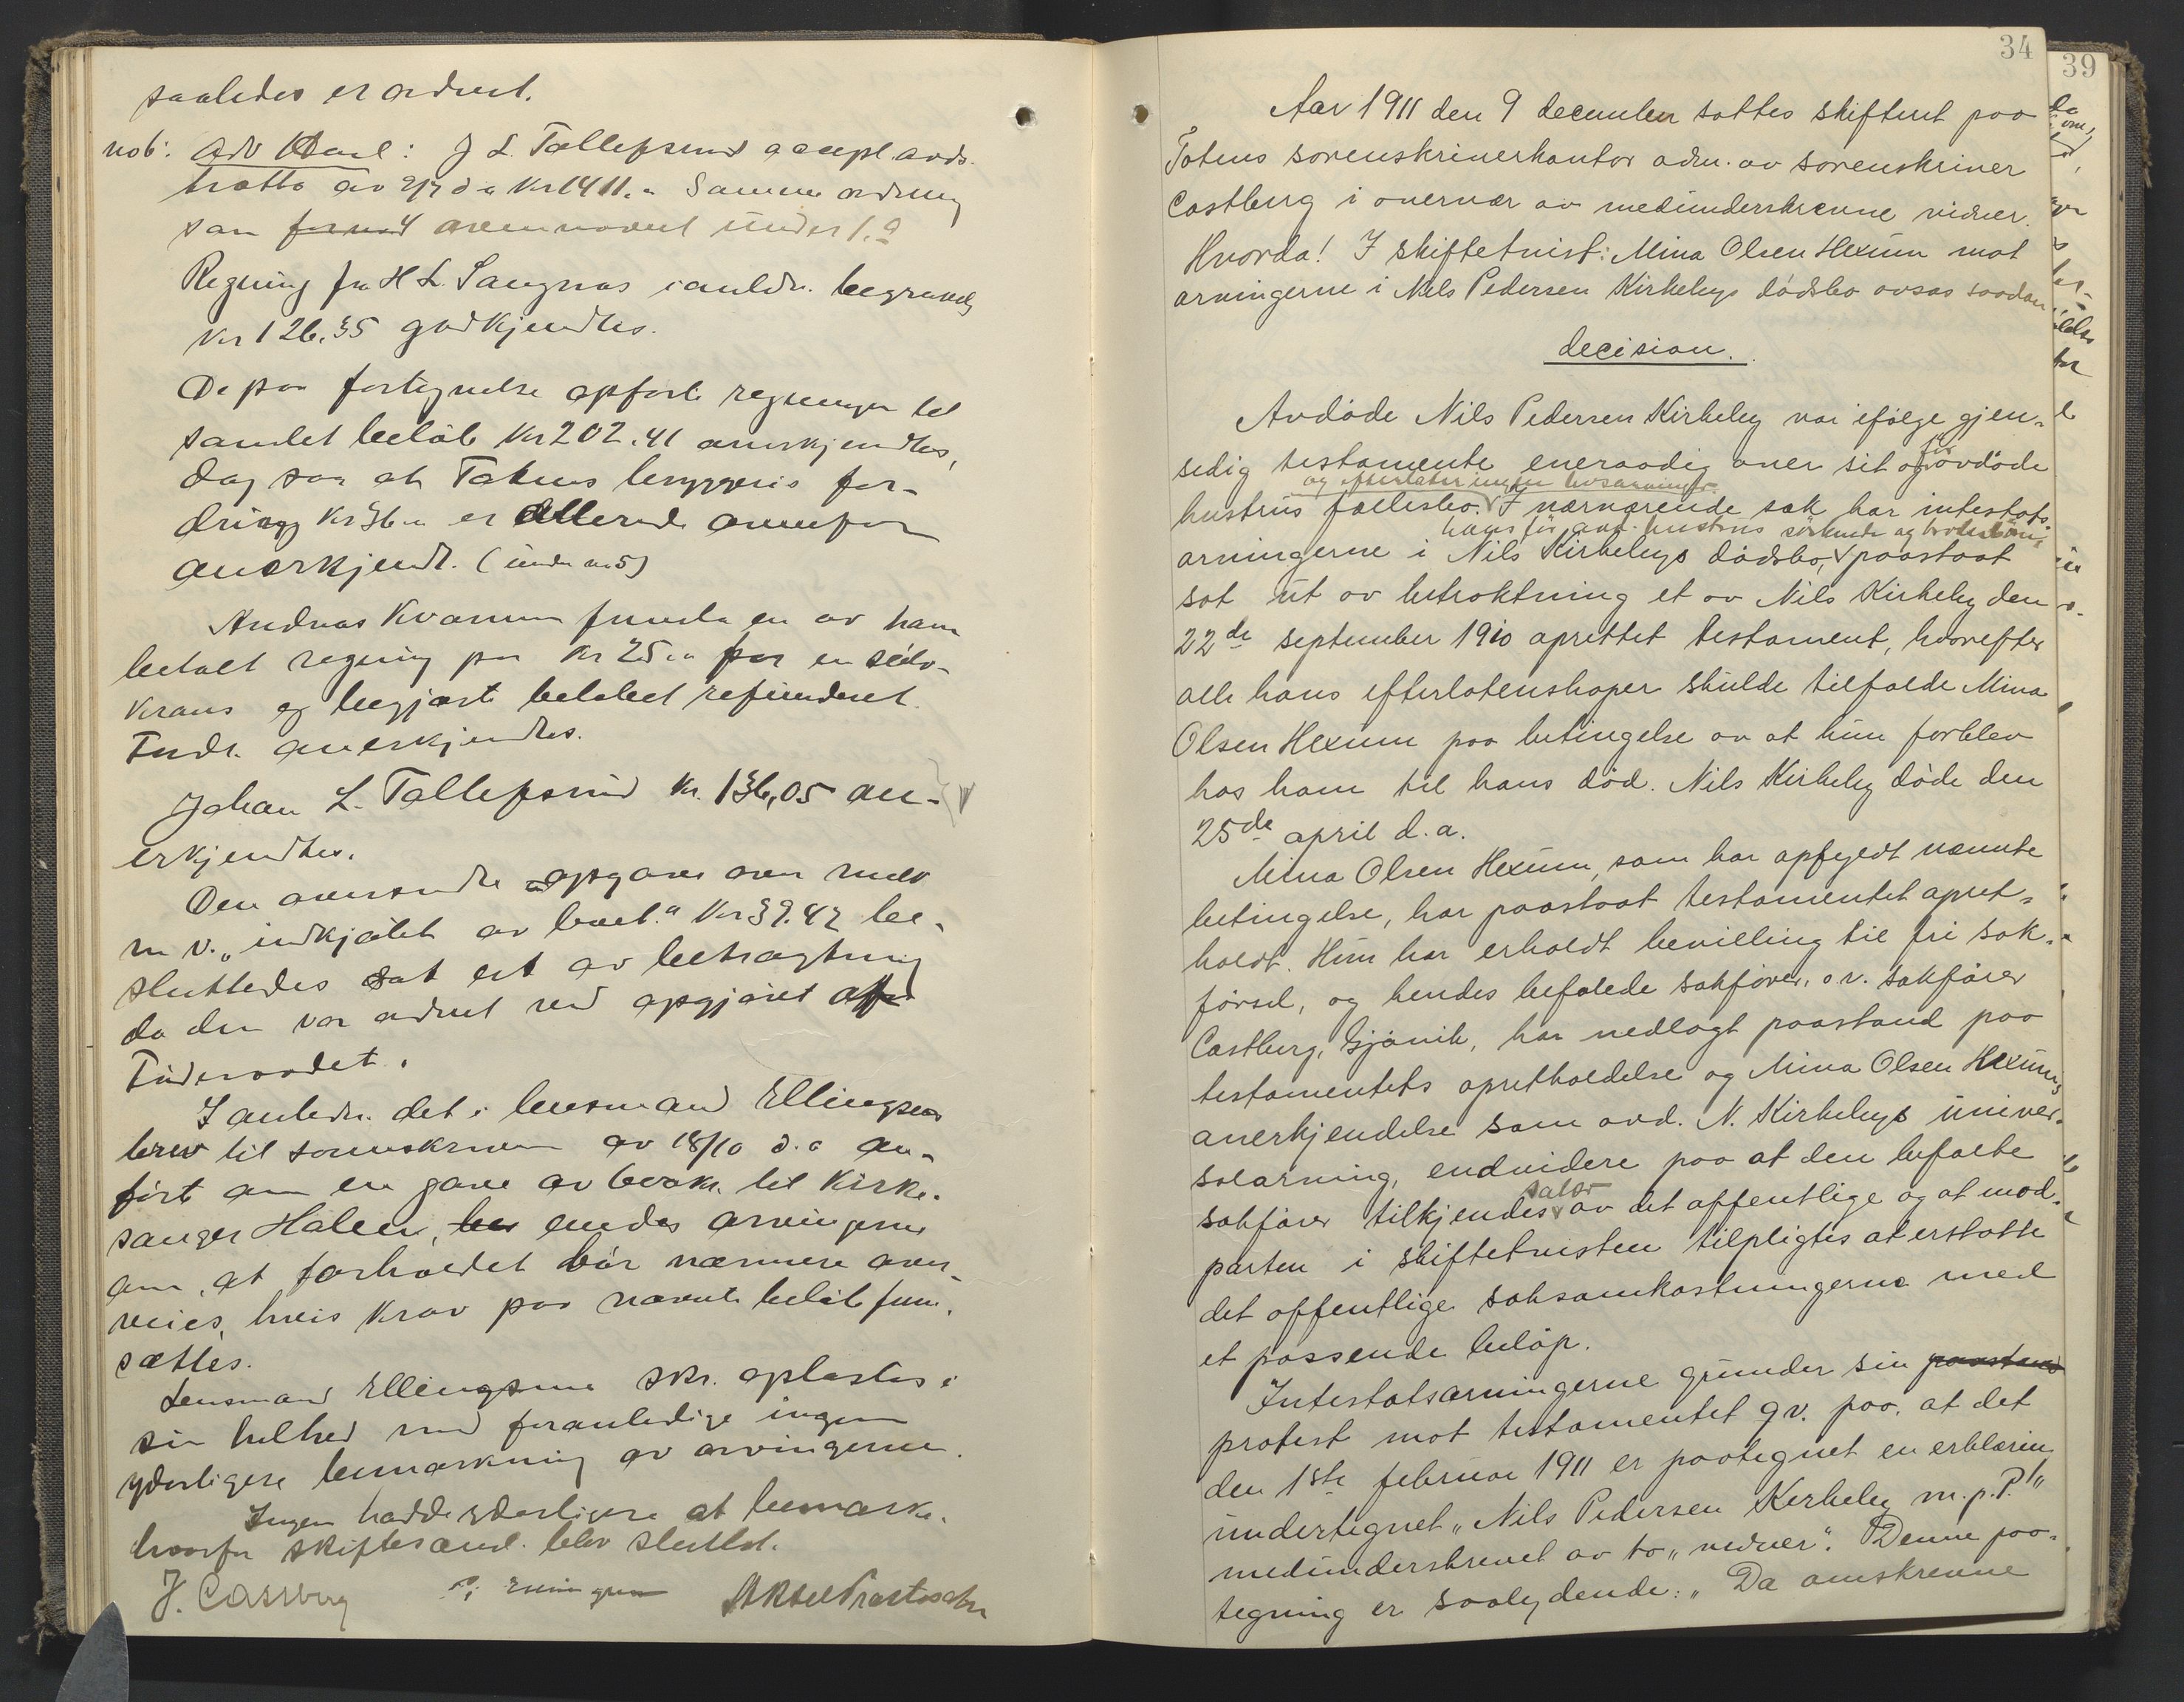 saaledes er ordnet.
nob: J L. Tollefsrud accept. avds.
tratta av 2/7 d a Kr 1411.- Samme ordning
som ovennævnt under 1. a
Regning fra H L. Sangnæs i anledn. begravelse
kr 126.35 godkjendtes.
De paa fortegnelse opførte regninger til
samlet beløb Kr 202.41 anerkjendtes,
dog saa at Totens bryggeris for-
dring Kr 36.- er allerede ovenfor
anerkjendt. (under no 5)
Andreas Kvamm fremla en av ham
betalt regning paa Kr 25.- for en sølv-
krans og begjærte beløbet refunderet.
Indr. anerkjendtes.
Johan L. Tollefsrud kr. 136,05 an-
erkjendtes.
Den oversendte opgave over melk
m v. "indkjøbt av boet." Kr 39.42 be-
sluttedes sat ut av betragtning
da den var ordnet ved opgjøret

I anledn. det i lensmand Ellingsens
brev til sorenskriveren av 18/10 d. a an-
ført om en gave av 600 kr. til Kirke-
sanger Hålen, endes arvingerne
om, at forholdet bør nærmere over-
veies, hvis krav paa nævnte beløb frem-
sættes.
Lensmand Ellingsens skr. oplæstes i
sin helhed uten foranledige ingen
yderligere bemærkning av arvingerne.
Ingen hadde yderligere at bemærke.
hvorfor skiftesaml. blev sluttet.
J. Castberg
34
39
Aar 1911 den 9 december sattes skifteret paa
Totens sorenskriverkontor adm. av sorenskriver
Castberg i overvær av medunderskrevne vidner.
Hvorda! I skiftetvist: Mina Olsen Hexum mot
arvingerne i Nils Pedersen Kirkebys dødsbo avsas saadan
decision.
Avdøde Nils Pedersen Kirkeby var ifølge gjen-
sedig testamente eneraadig over sit og før avdøde
og efterlater ingen livsarvinger.
hustrus fællesbo. I nærværende sak har intestats-
hans før avd. hustrus søskende og brodersbørn,
arvingerne i Nils Kirkebys dødsbo, paastaat
sat ut av betraktning et av Nils Kirkeby den
22de september 1910 oprettet testament, hvorefter
alle hans efterlatenskaper skulde tilfalde Mina
Olsen Hexum paa betingelse av at hun forblev
hos ham til hans død. Nils Kirkeby døde den
25de april d. a.
Mina Olsen Hexum, som har opfyldt nævnte
betingelse, har paastaat testamentet opret-
holdt. Hun har erholdt bevilling til fri sak-
førsel, og hendes befalede sakfører, o. r. sakfører
Castberg, Gjøvik, har nedlagt paastand paa
testamentets opretholdelse og Mina Olsen Hexums
anerkjendelse som avd. N. Kirkebys univer-
salarving, endvidere paa at den befalte
sakfører tilkjendes salær av det offentlige og at mod-
parten i skiftetvisten tilpligtes at erstatte
det offentlige saksomkostningerne med
et passende beløp.
Intestatsarvingerne grunder sin paastand
protest mot testamentet gv. paa, at det
den 1ste februar 1911 er paategnet en erklæring
undertegnet "Nils Pedersen Kirkeby m. p. P."
medunderskrevet av to "vidner". Denne paa-
tegning er saalydende: "Da omskrevne